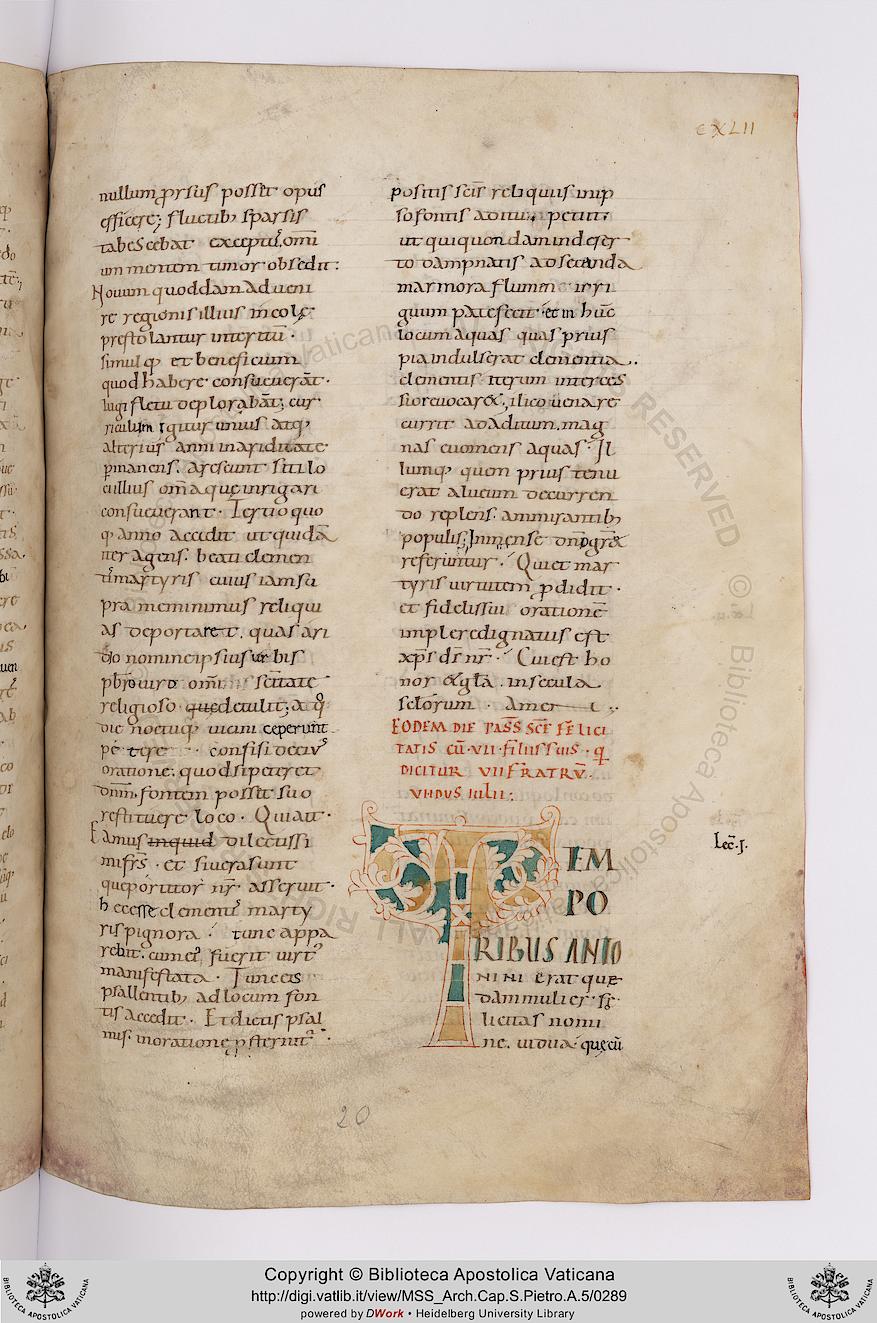 CXLII
nullum prsus posset opus
efficere; fluctib; sparsis
tabescebat exceptus. omi
um mentem timor obsedit:
Nouum quoddam adueni
re regionis illius incolę
prestolantur interitū ·
simulq; et beneficium
quod habere consueuerāt ·
lugi fletu deplorabāt; cur
riculum igitur unius atq;
alterius anni in ariditate
pmanens. arescunt siti lo
cullius om̄a que inrigari
consueuerant · Tertio quo
q; anno accidit ut quidā
iter agens. beati clemen
tis martyris cuius iam su
pra meminimus reliqui
as deportaret. quas ari
dio nomine ipsius urbis
pbr̄o uiro om̄i scītate
religioso detulit;
die noctuq; uicini ceperunt
petere · confisi de eius
oratione. quod si peteret
dnm̄. fontem posset suo
restituere loco · Qui ait ·
Eamus inquid dilectissi
mi frs̄ · et si uera sunt
que portitor nr̄ asseruit ·
hec esse clementis marty
ris pignora · tunc appa
rebit. cum ei fuerit uirtus
manifestata · Tunc eis
psallentib; ad locum fon
tis accedit · Et dictis psal
mis. in oratione psternitur ·
positis scīs reliquiis in ip
so fontis aditu, petiit;
ut qui quondam in deser
to dampnatis ad secanda
marmora flumen irri
guum patefecit · et in hūc
locum aquas quas prius
pia indulserat clementia.
clementis iterum interces
sio reuocaret, ilico uena re
currit ad aditum. mag
nas euomens aquas · Il
lumq; quem prius tenu
erat alueum decurren
do replens. ammirantib;
populis; Inmense dnō grē
referuntur · Qui et mar
tyris uirtutem pdidit ·
et fidelissui orationē
implere dignatus est
xp̄s ds̄ nr̄ · Cui est ho
nor & glā. in secula
sclorum · Amen
EODEM DIE PASS̄ SCĒ FELICI
TATIS CŪ · VII · FILIIS SUIS · Q
DICITUR VII FRATRŪ ·
VNDUS IULII :
TEM
PO
RIBUS ANTO
NINI erat que
dam mulier · fe
licitas nomi
ne. uidua quę cū
Lec̄. I.
20
Copyright © Biblioteca Apostolica Vaticana
http://digi.vatlib.it/view/MSS_Arch.Cap.S.Pietro.A.5/0289
powered by DWork • Heidelberg University Library